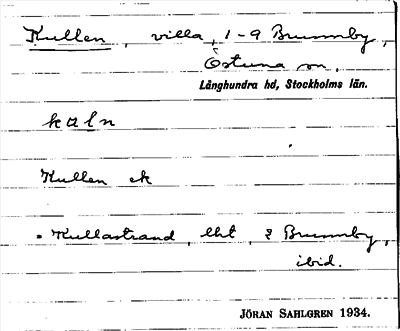 Kullen, villa, 1-9 Brunnby,
Östuna sn.
Långhundra hd, Stockholms län.
kαln
Kullen ek
Kullastrand, lht, 2 Brunnby,
ibid.
JÖRAN SAHLGREN 1934.